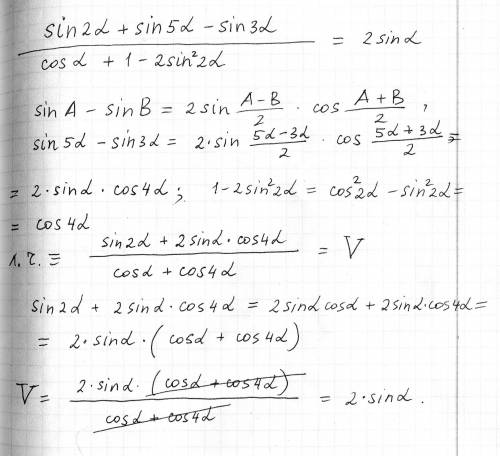 sin2α + sin5α - sin3α / cosα + 1 - 2sin²2α = 2sinα
sin A - sin B = 2 sin A-B/2 · cos A+B/2 ,
sin5α - sin3α = 2·sin 5α-3α/2 · cos 5α+3α/2 =
= 2·sinα·cos4α; 1-2sin²2α = cos²2α - sin²2α =
= cos4α
л.ч. ≡ sin2α + 2sinα·cos4α / cosα + cos4α = V
sin2α + 2sinα·cos4α = 2sinαcosα + 2sinα·cos4α =
= 2·sinα·(cosα + cos4α)
V = 2·sinα·(cosα + cos4α) / cosα + cos4α = 2·sinα.